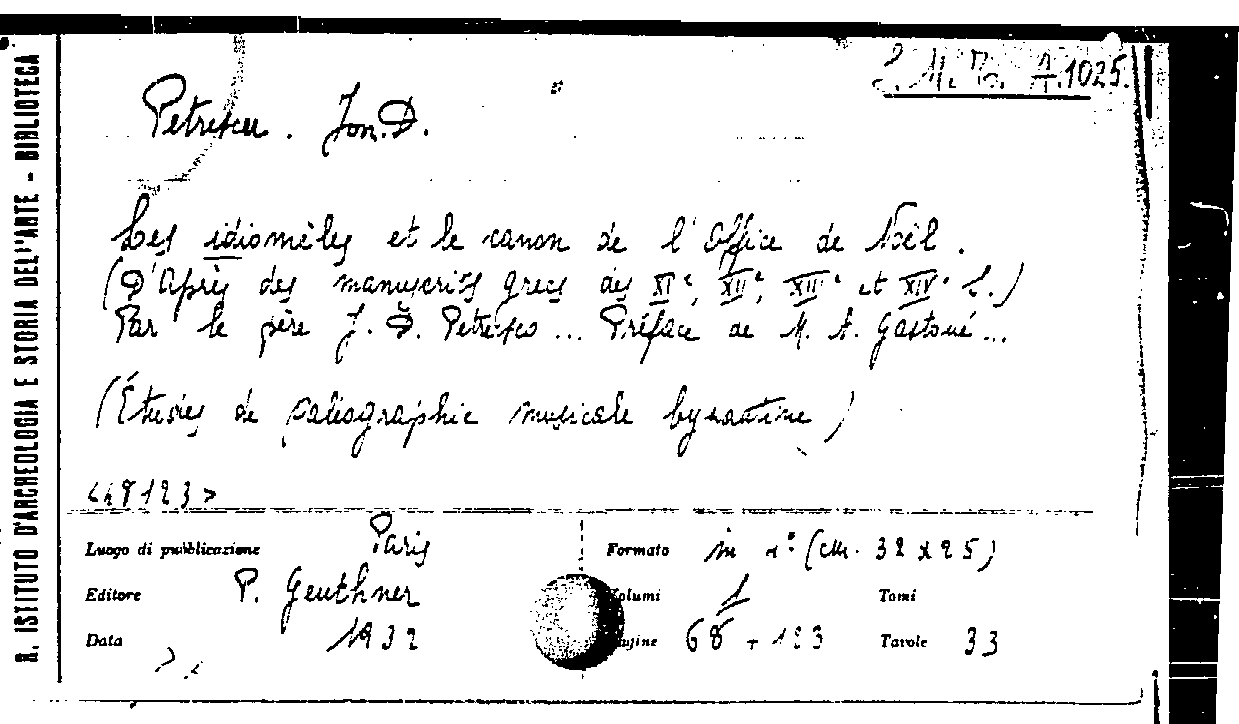 R. ISTITUTO D'ARCHEOLOGIA E STORIA DELL'ARTE - BIBLIOTECA
1025.
Petrescu. Jon.D.
Les idiomèles et le canon de l'Office de Noël.
(D'Après des manuscrits grecs des XIe, XIIe, XIIIe et XIVe s.)
Par le père J. D. Petresco... Préface de M. A. Gastoué...
(Études de paléographie musicale byzantine)
<48123>
Luogo di pubblicazione Paris
Editore P. Geuthner
Data 1932
Formato in 4° (cm. 32x25)
Volumi 1 Tomi
Pagine 68 + 123 Tavole 33